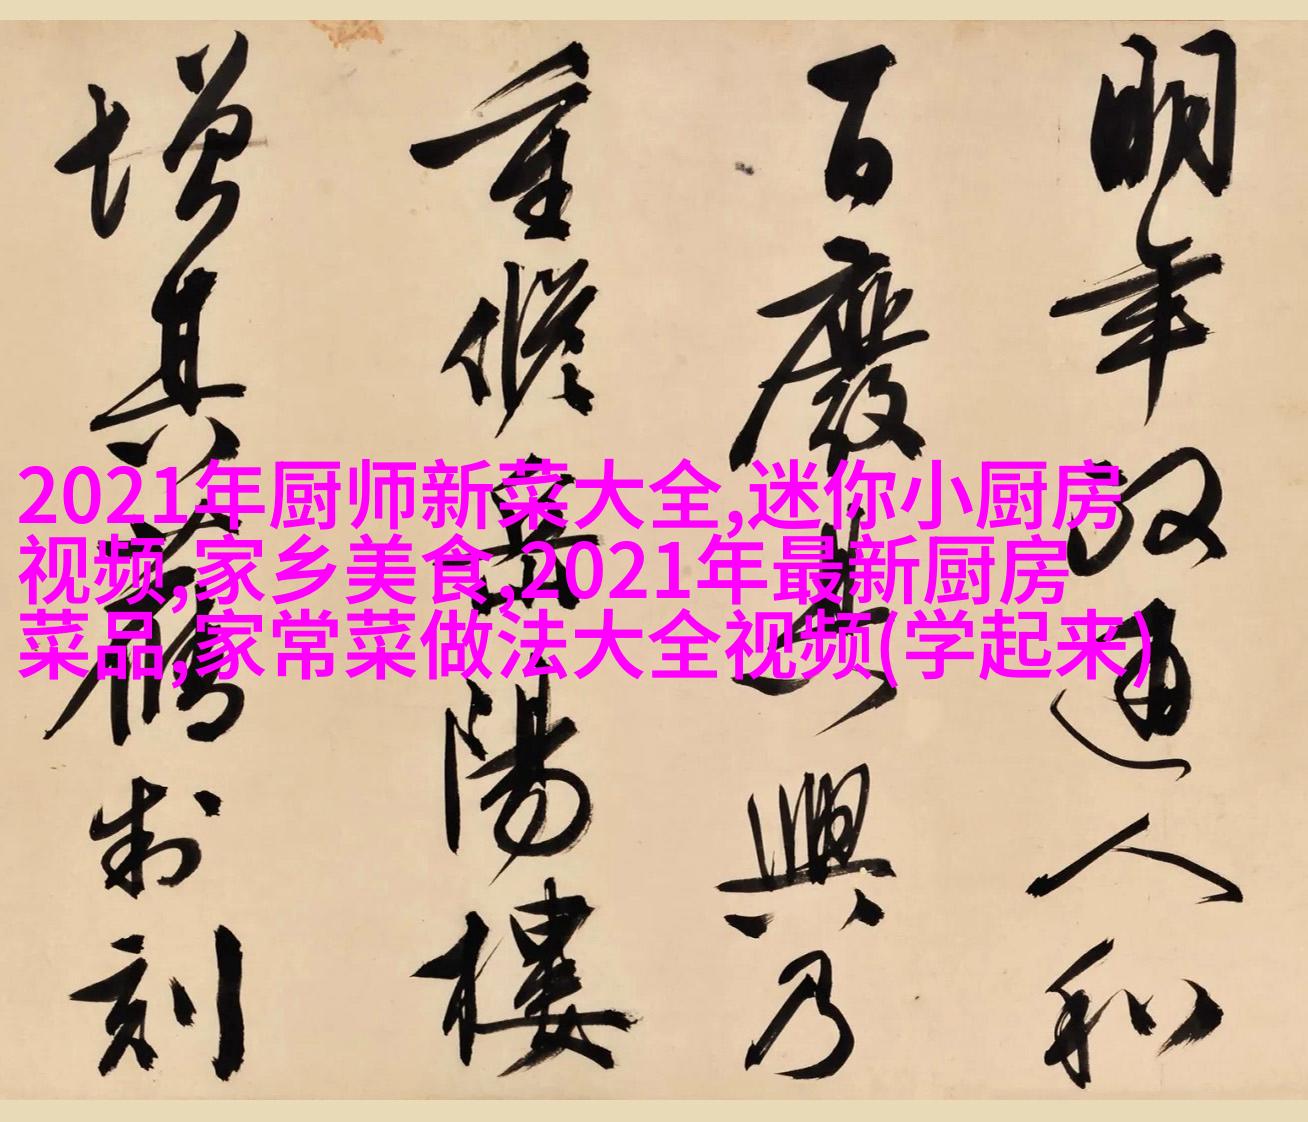 明年政通人和
百廢具興乃
重修岳陽樓
增其舊制刻
2021年厨师新菜大全,迷你小厨房
视频,家乡美食,2021年最新厨房
菜品,家常菜做法大全视频(学起来)